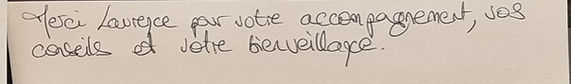 Merci Laurence pour votre accompagnement, vos
conseils et votre bienveillance.